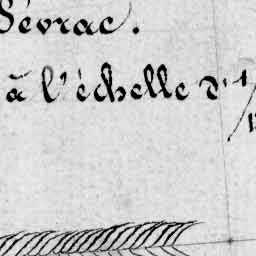 Sévrac.
à l'échelle d'1/